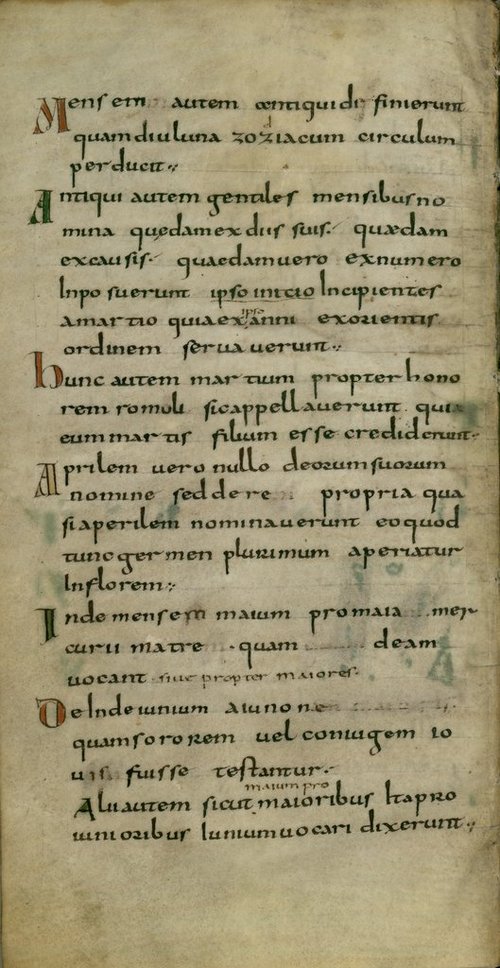 Mensem autem antiqui di finierunt
quamdiu luna zoziacum circulum
perducit
Antiqui autem gentiles mensibus no
mina quędam ex diis suis quædam
ex causis quaedam uero ex numero
Inposuerunt ipso initio Incipientes
a martio quia ex ipso anni exorientis
ordinem seruauerunt
hunc autem martium propter hono
rem romuli sic appellauerunt quia
eum martis filium esse crediderunt
Aprilem uero nullo deorum suorum
nomine sed de re propria qua
si aperilem nominauerunt eo quod
tunc germen plurimum aperiatur
Inflorem
Inde mensem maium pro maia mer
curii matre quam deam
uocant siue propter maiores
DeInde iunium a iunone
quam sororem uel coniugem io
uis fuisse testantur
Alii autem sicut maium pro maioribus Ita pro
iunioribus Iunium uocari dixerunt